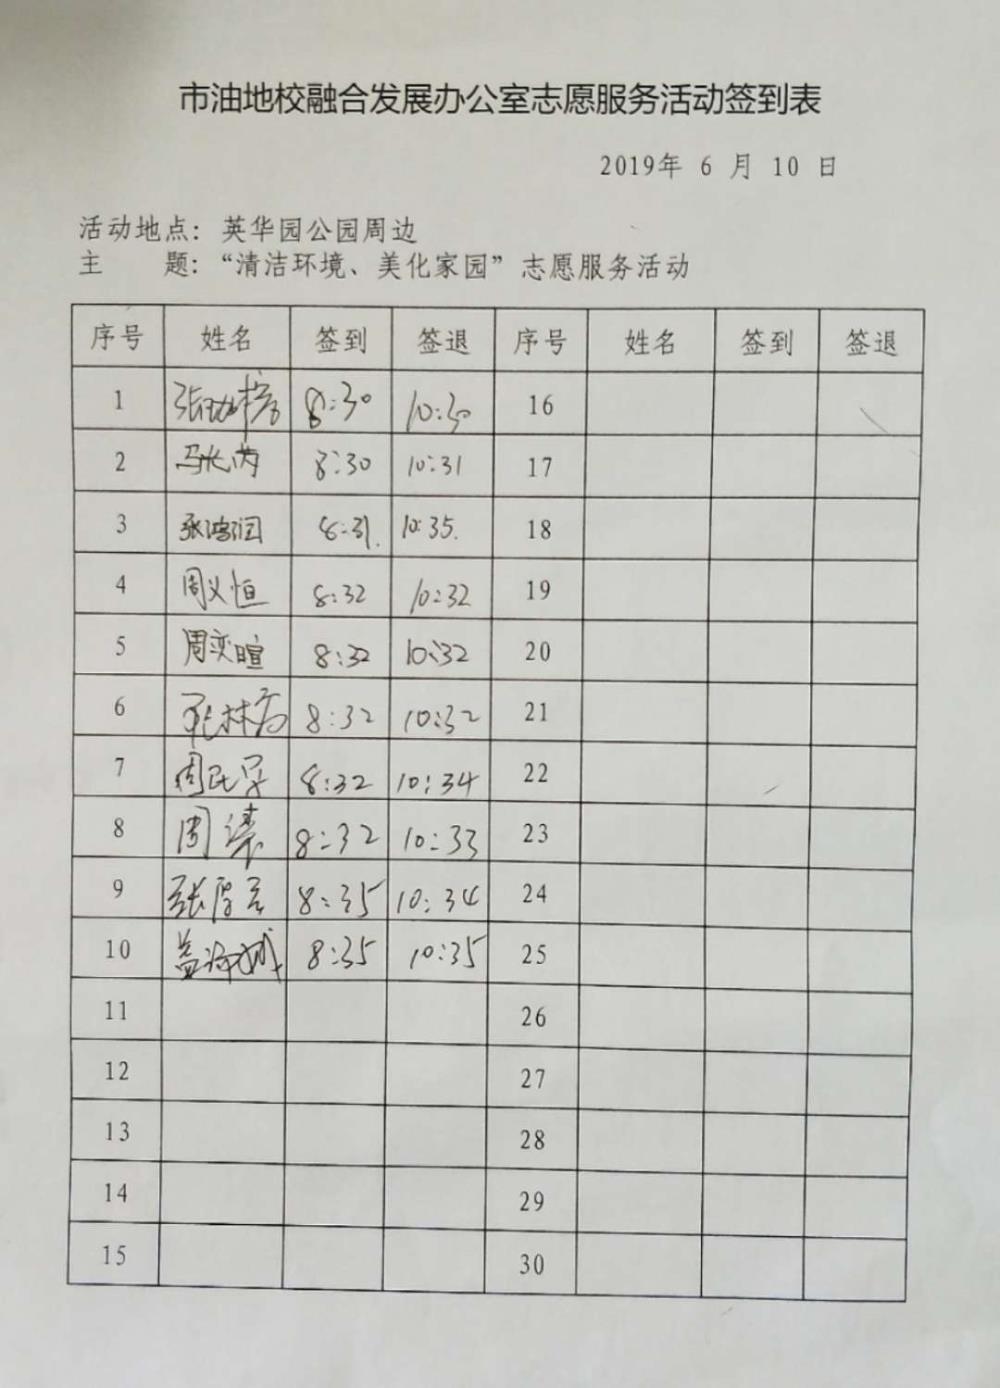 市油地校融合发展办公室志愿服务活动签到表
2019年 6 月 10 日
活动地点：英华园公园周边
主 题：“清洁环境、美化家园”志愿服务活动
序号 姓名 签到 签退 序号 姓名 签到 签退
1 8:30 10:30 16
2 8:30 10:31 17
3 张鸿润 8:31. 10:35. 18
4 周义恒 8:32 10:32 19
5 周奕暄 8:32 10:32 20
6 8:32 10:32 21
7 8:32 10:34 22
8 周 8:32 10:33 23
9 8:35 10:34 24
10 8:35 10:35 25
11 26
12 27
13 28
14 29
15 30